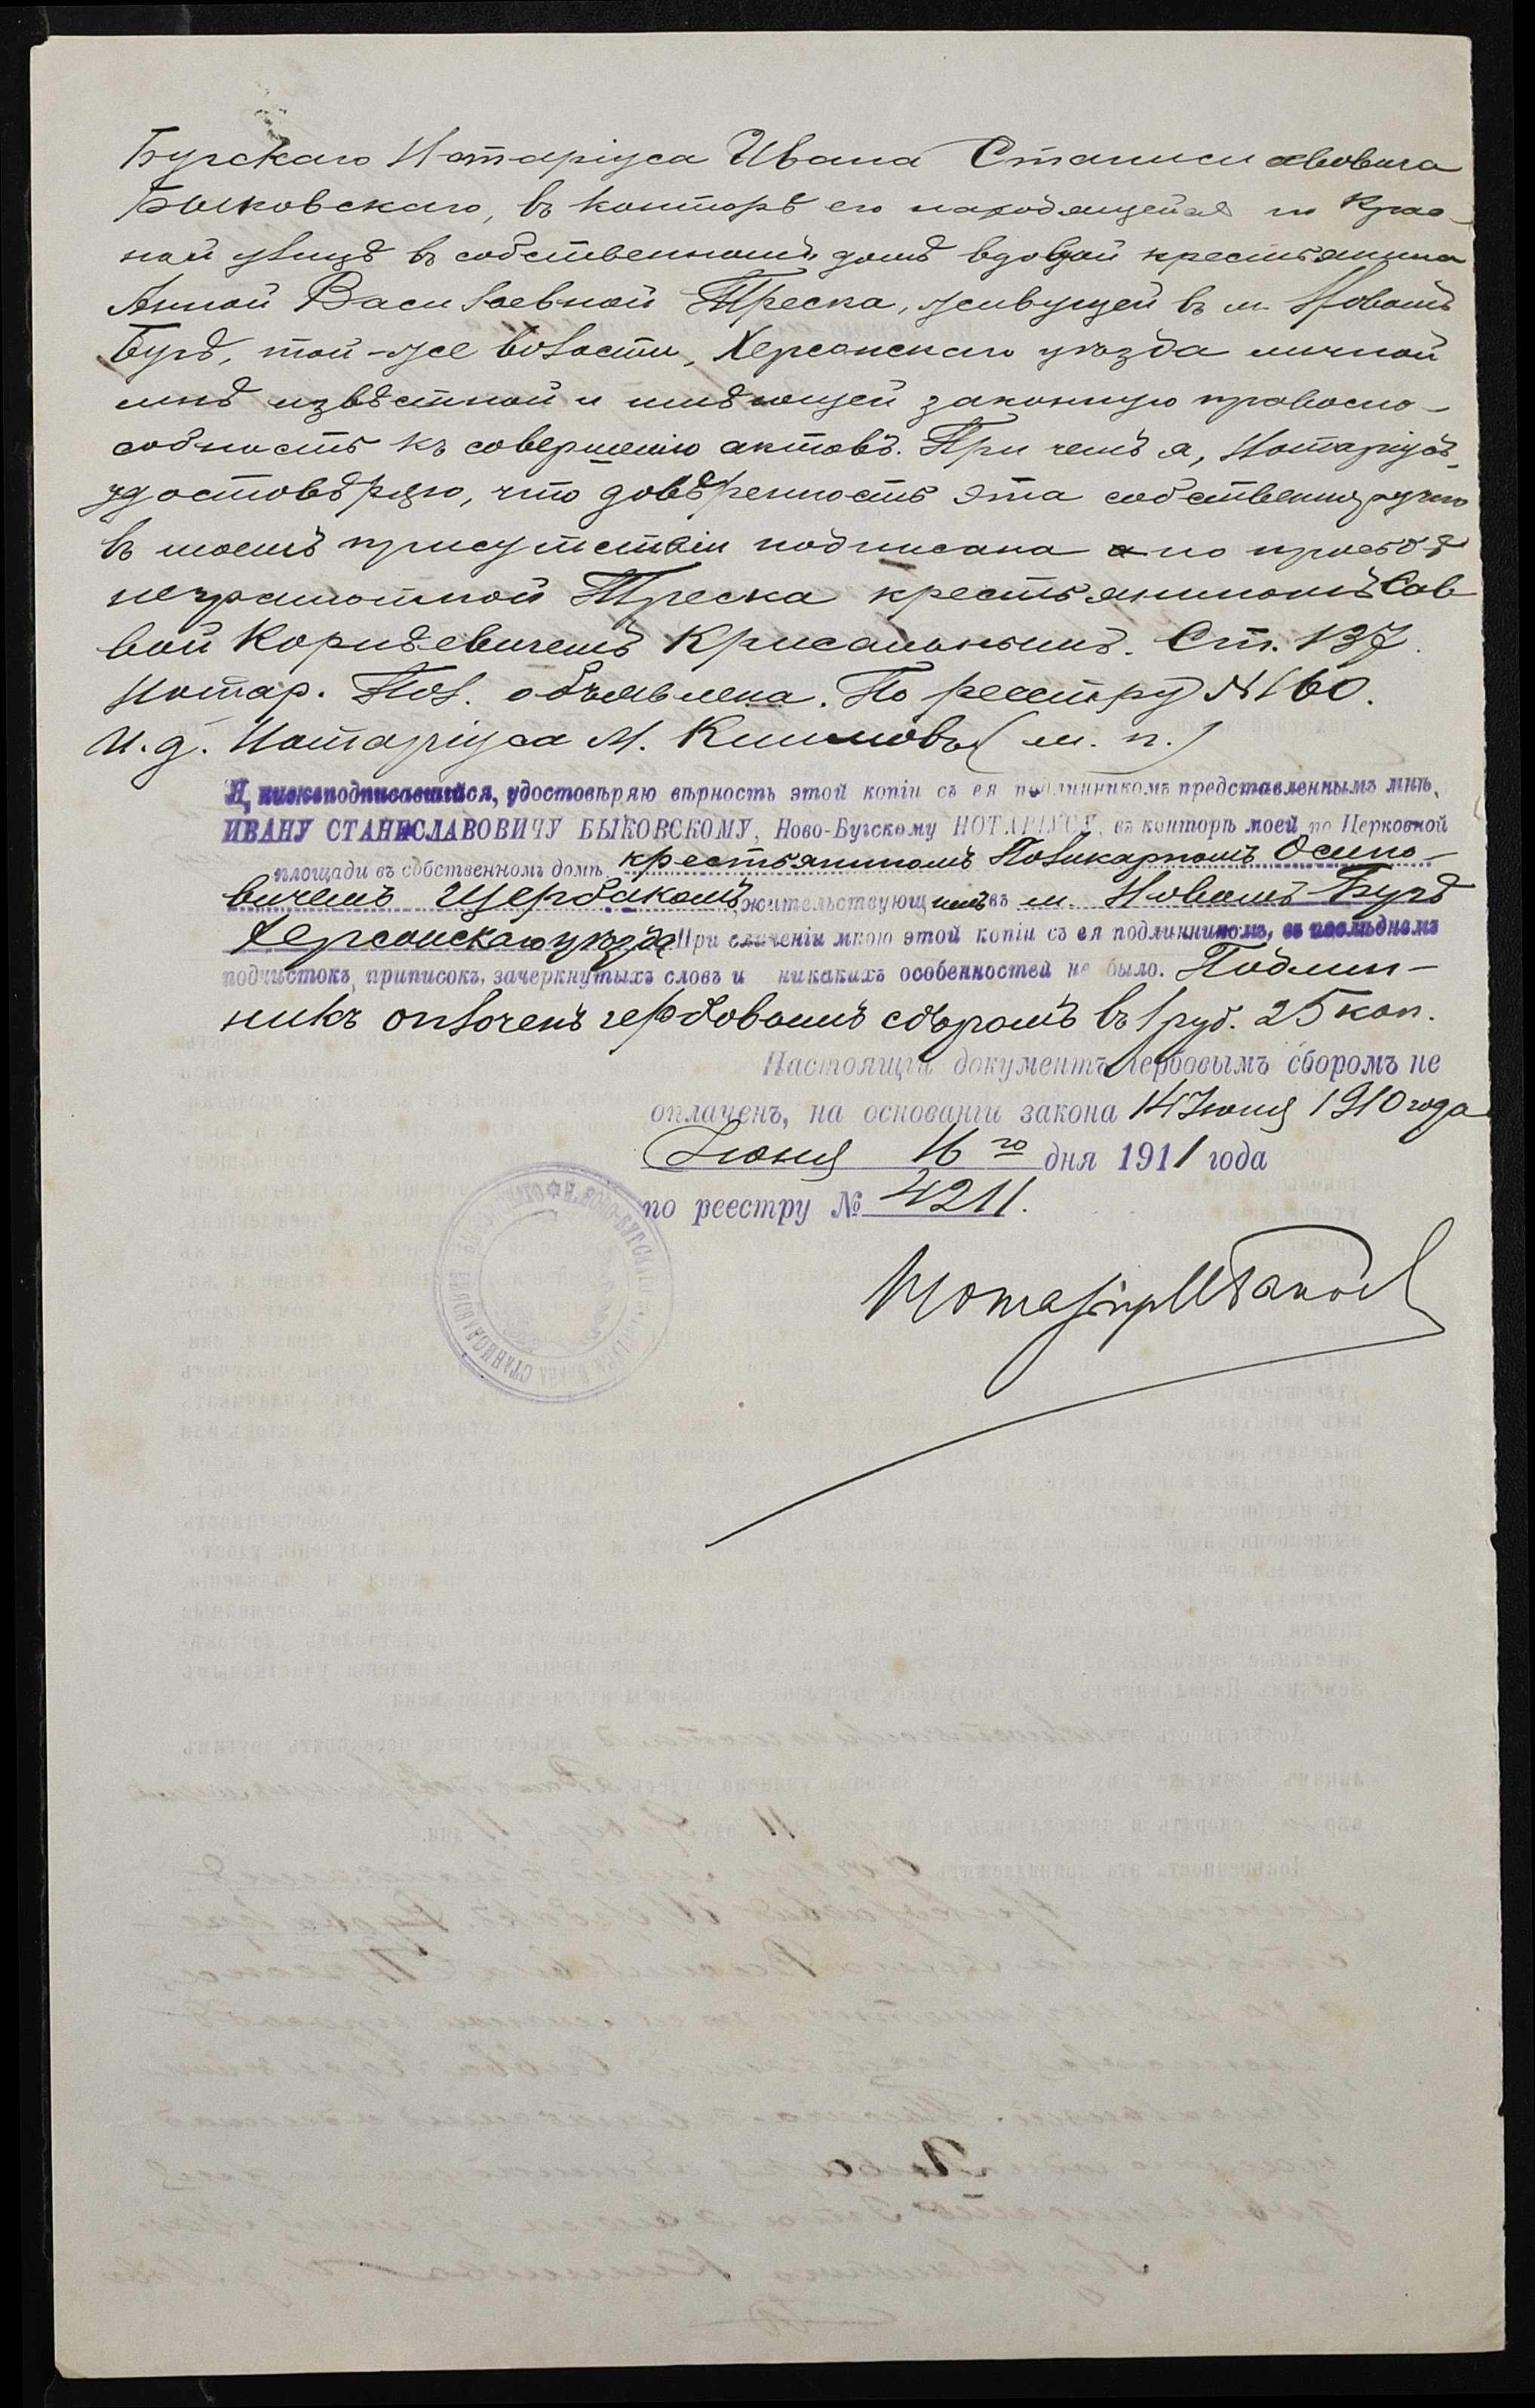 Бугскаго Нотаріуса Ивана Станиславовича
Быковскаго, въ конторѣ его находящейся по
ной улицѣ въ собственномъ домѣ вдовой крестьянина
Анной Васильевной Треска, живущей въ м. Новомъ
Бугѣ, той-же волости, Херсонскаго уѣзда лично
мнѣ извѣстной и имѣющей законную правоспо-
собность къ совершенію актовъ. При чемъ я, Нотаріусъ,
удостовѣряю, что довѣренность эта собственноручно
въ моемъ присутствіи подписана по просьбѣ
неграмотной Треска крестьяниномъ Сав
вой Корнѣевичемъ Ст. 137.
Нотар. Пол. объявлена. По реестру № 160.
И. д. Нотаріуса М. Климовъ (м. п.)
Я, нижеподписавшійся, удостовѣряю вѣрность этой копіи съ ея подлинникомъ представленнымъ мнѣ,
ИВАНУ СТАНИСЛАВОВИЧУ БЫКОВСКОМУ, Ново-Бугскому НОТАРІУСУ, въ конторѣ моей по Церковной
площади въ собственномъ домѣ, крестьяниномъ Поликарпомъ Осипо-
вичемъ Щербакомъ, жительствующимъ въ м. Новомъ Бугѣ
Херсонскаго уѣзда При сличеніи мною этой копіи съ ея подлинникомъ, въ послѣднемъ
подчистокъ, приписокъ, зачеркнутыхъ словъ и никакихъ особенностей не было. Подлин-
никъ оплоченъ гербовымъ сборомъ въ 1 руб. 25 коп.
Настоящій документъ гербовымъ сборомъ не
оплаченъ, на основаніи закона 14 Іюня 1910 года
Іюня 16 го дня 1911 года
по реестру № 4211.
Нотаріусъ